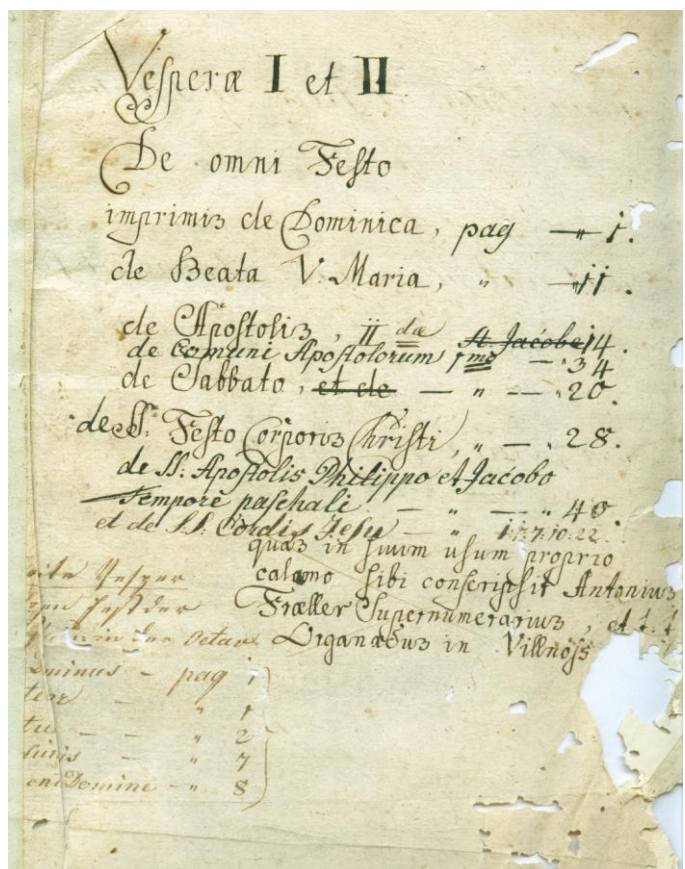 Vesperæ I et II
De omni Festo
imprimis de Dominica, pag — " 1.
de Beata V. Maria, " — 11.
de Apostolis, II dæ St. Jacobe 14.
de Comuni Apostolorum 1 mæ — " 34
de Sabbato, et de — " — " 20.
de Ss. Festo Corporis Christi, " — " 28.
de SS. Apostolis Philippo et Jacobo
Tempore paschali — " — " 40.
et de SS. Cordis Jesu — " 1.7.7.10.22
quas in suum usum proprio
calamo sibi conscripsit Antonius
Fræller Supernumerarius, et t. t.
Organædus in Villnöss
Vesper
Fest der
in der Octav
Dominus — pag 1
" 1
— — " 2
" 7
Domine — " 8